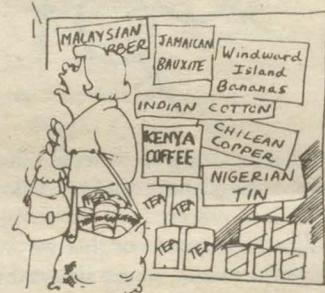 MALAYSIAN
JAMAICAN
BAUXITE
Windward
Island
Bananas
INDIAN COTTON
KENYA
COFFEE
CHILEAN
COPPER
NIGERIAN
TIN
TEA
TEA
TEA
TEA
TEA